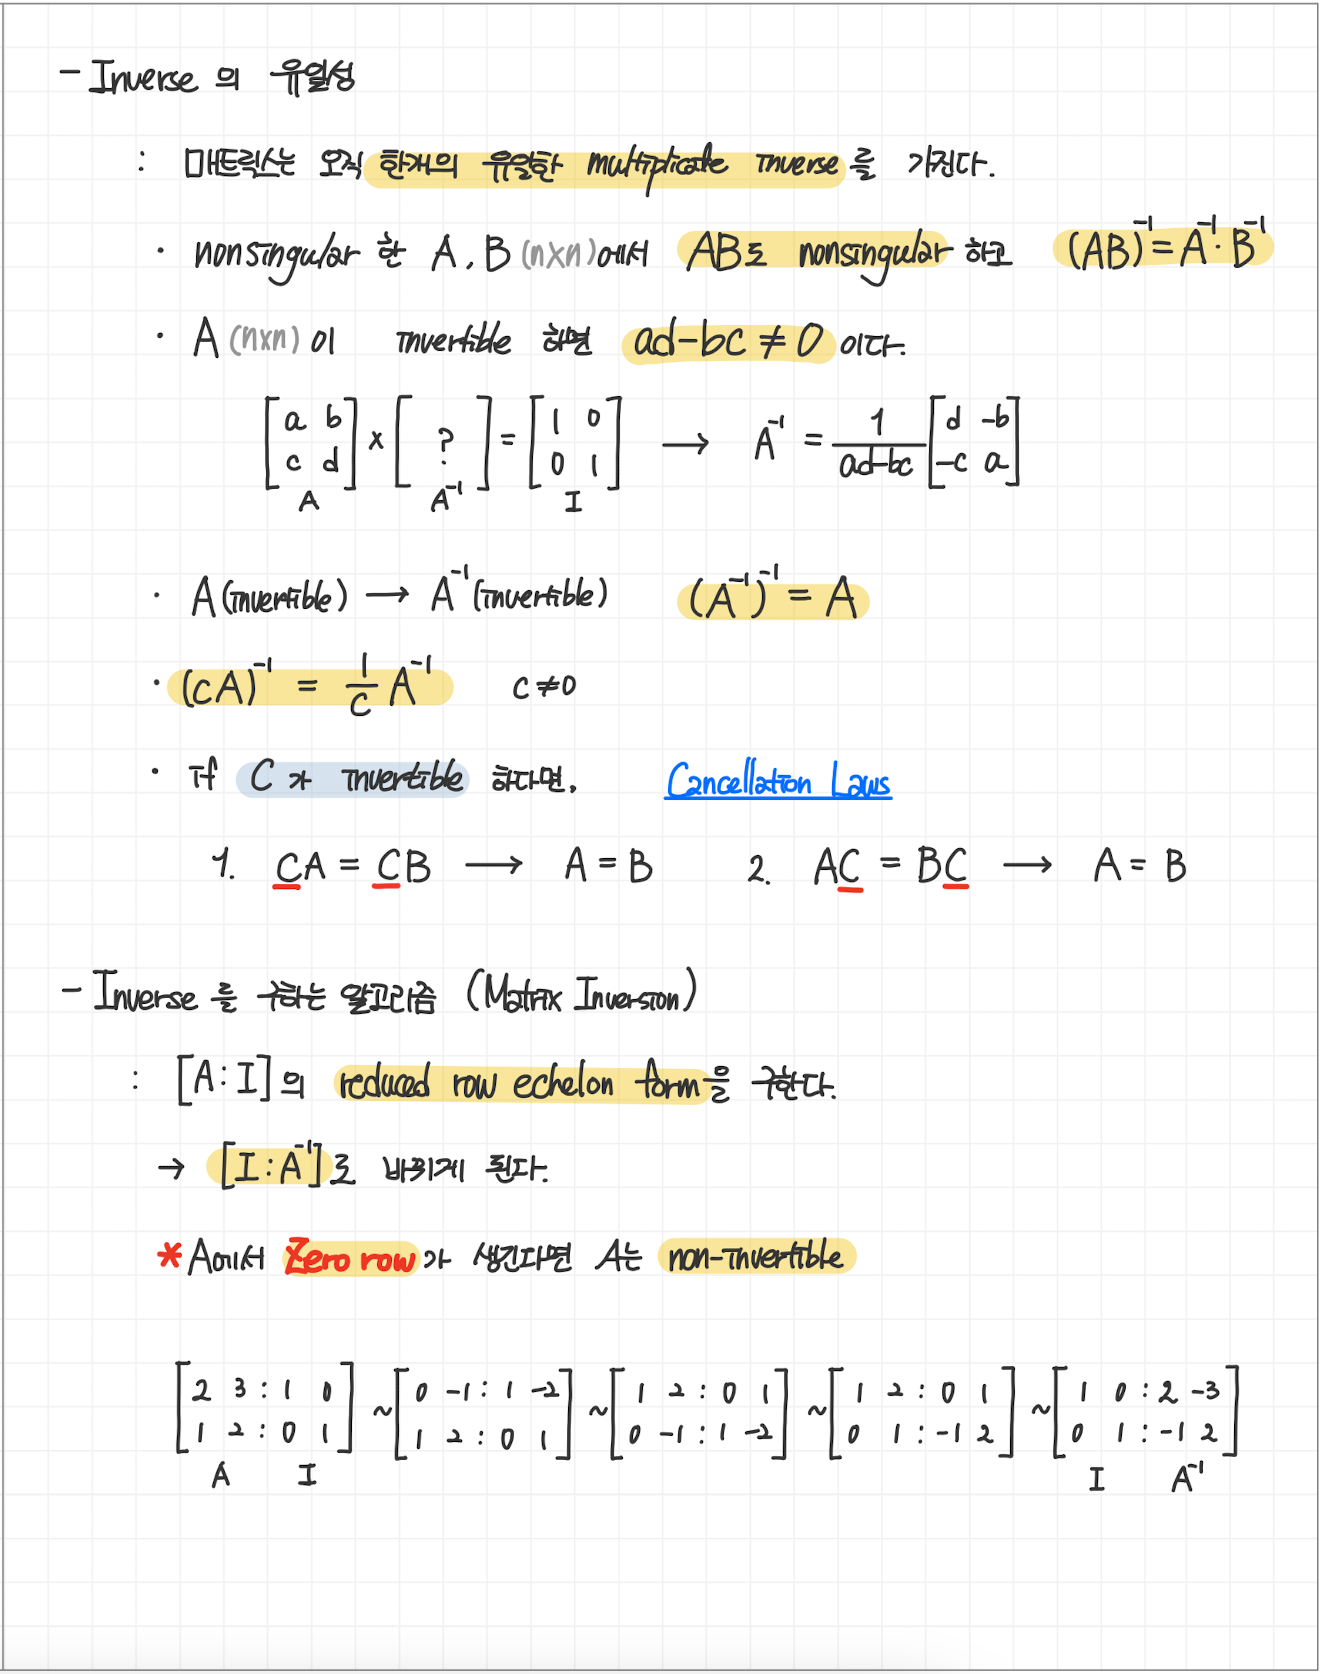 - Inverse 의 유일성
: 매트릭스는 오직 한개의 유일한 multiplicate inverse 를 가진다.
· nonsingular 한 A, B (n×n)에서 AB도 nonsingular 하고 (AB)⁻¹ = A⁻¹·B⁻¹
· A (n×n) 이 invertible 하면 ad-bc ≠ 0 이다.
[a b; c d] × [?] = [1 0; 0 1] → A⁻¹ = 1/(ad-bc) [d -b; -c a]
A A⁻¹ I
· A (invertible) → A⁻¹ (invertible) (A⁻¹)⁻¹ = A
· (cA)⁻¹ = 1/c A⁻¹ c≠0
· if C가 invertible 하다면, Cancellation Laws
1. CA = CB → A = B 2. AC = BC → A = B
- Inverse 를 구하는 알고리즘 (Matrix Inversion)
: [A : I] 의 reduced row echelon form을 구한다.
→ [I : A⁻¹]로 바뀌게 된다.
* A에서 Zero row가 생긴다면 A는 non-invertible
[2 3 : 1 0; 1 2 : 0 1] ~ [0 -1 : 1 -2; 1 2 : 0 1] ~ [1 2 : 0 1; 0 -1 : 1 -2] ~ [1 2 : 0 1; 0 1 : -1 2] ~ [1 0 : 2 -3; 0 1 : -1 2]
A I I A⁻¹